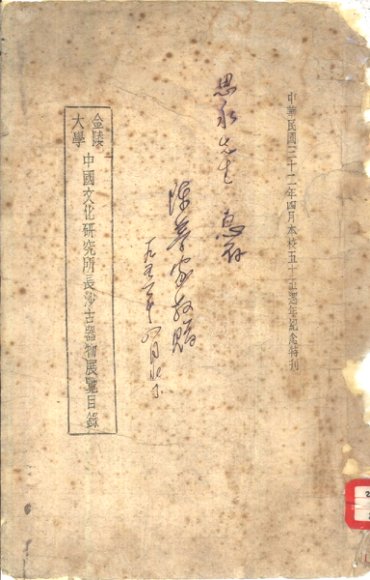 中華民國三十二年四月本校五十五週年紀念特刊
思永先生 惠存
陳夢家敬贈
金陵
大學
中國文化研究所長沙古器物展覽目錄